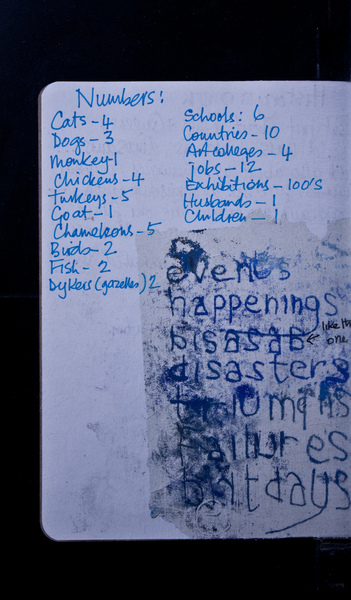 Numbers:
Cats - 4
Dogs - 3
Monkey - 1
Chickens - 4
Turkeys - 5
Goat - 1
Chameleons - 5
Birds - 2
Fish - 2
Dykers (gazelles) 2
Schools: 6
Countries - 10
Art colleges - 4
Jobs - 12
Exhibitions - 100's
Husbands - 1
Children - 1
events
happenings
bisasab
like this
one
disasters
triumphs
failures